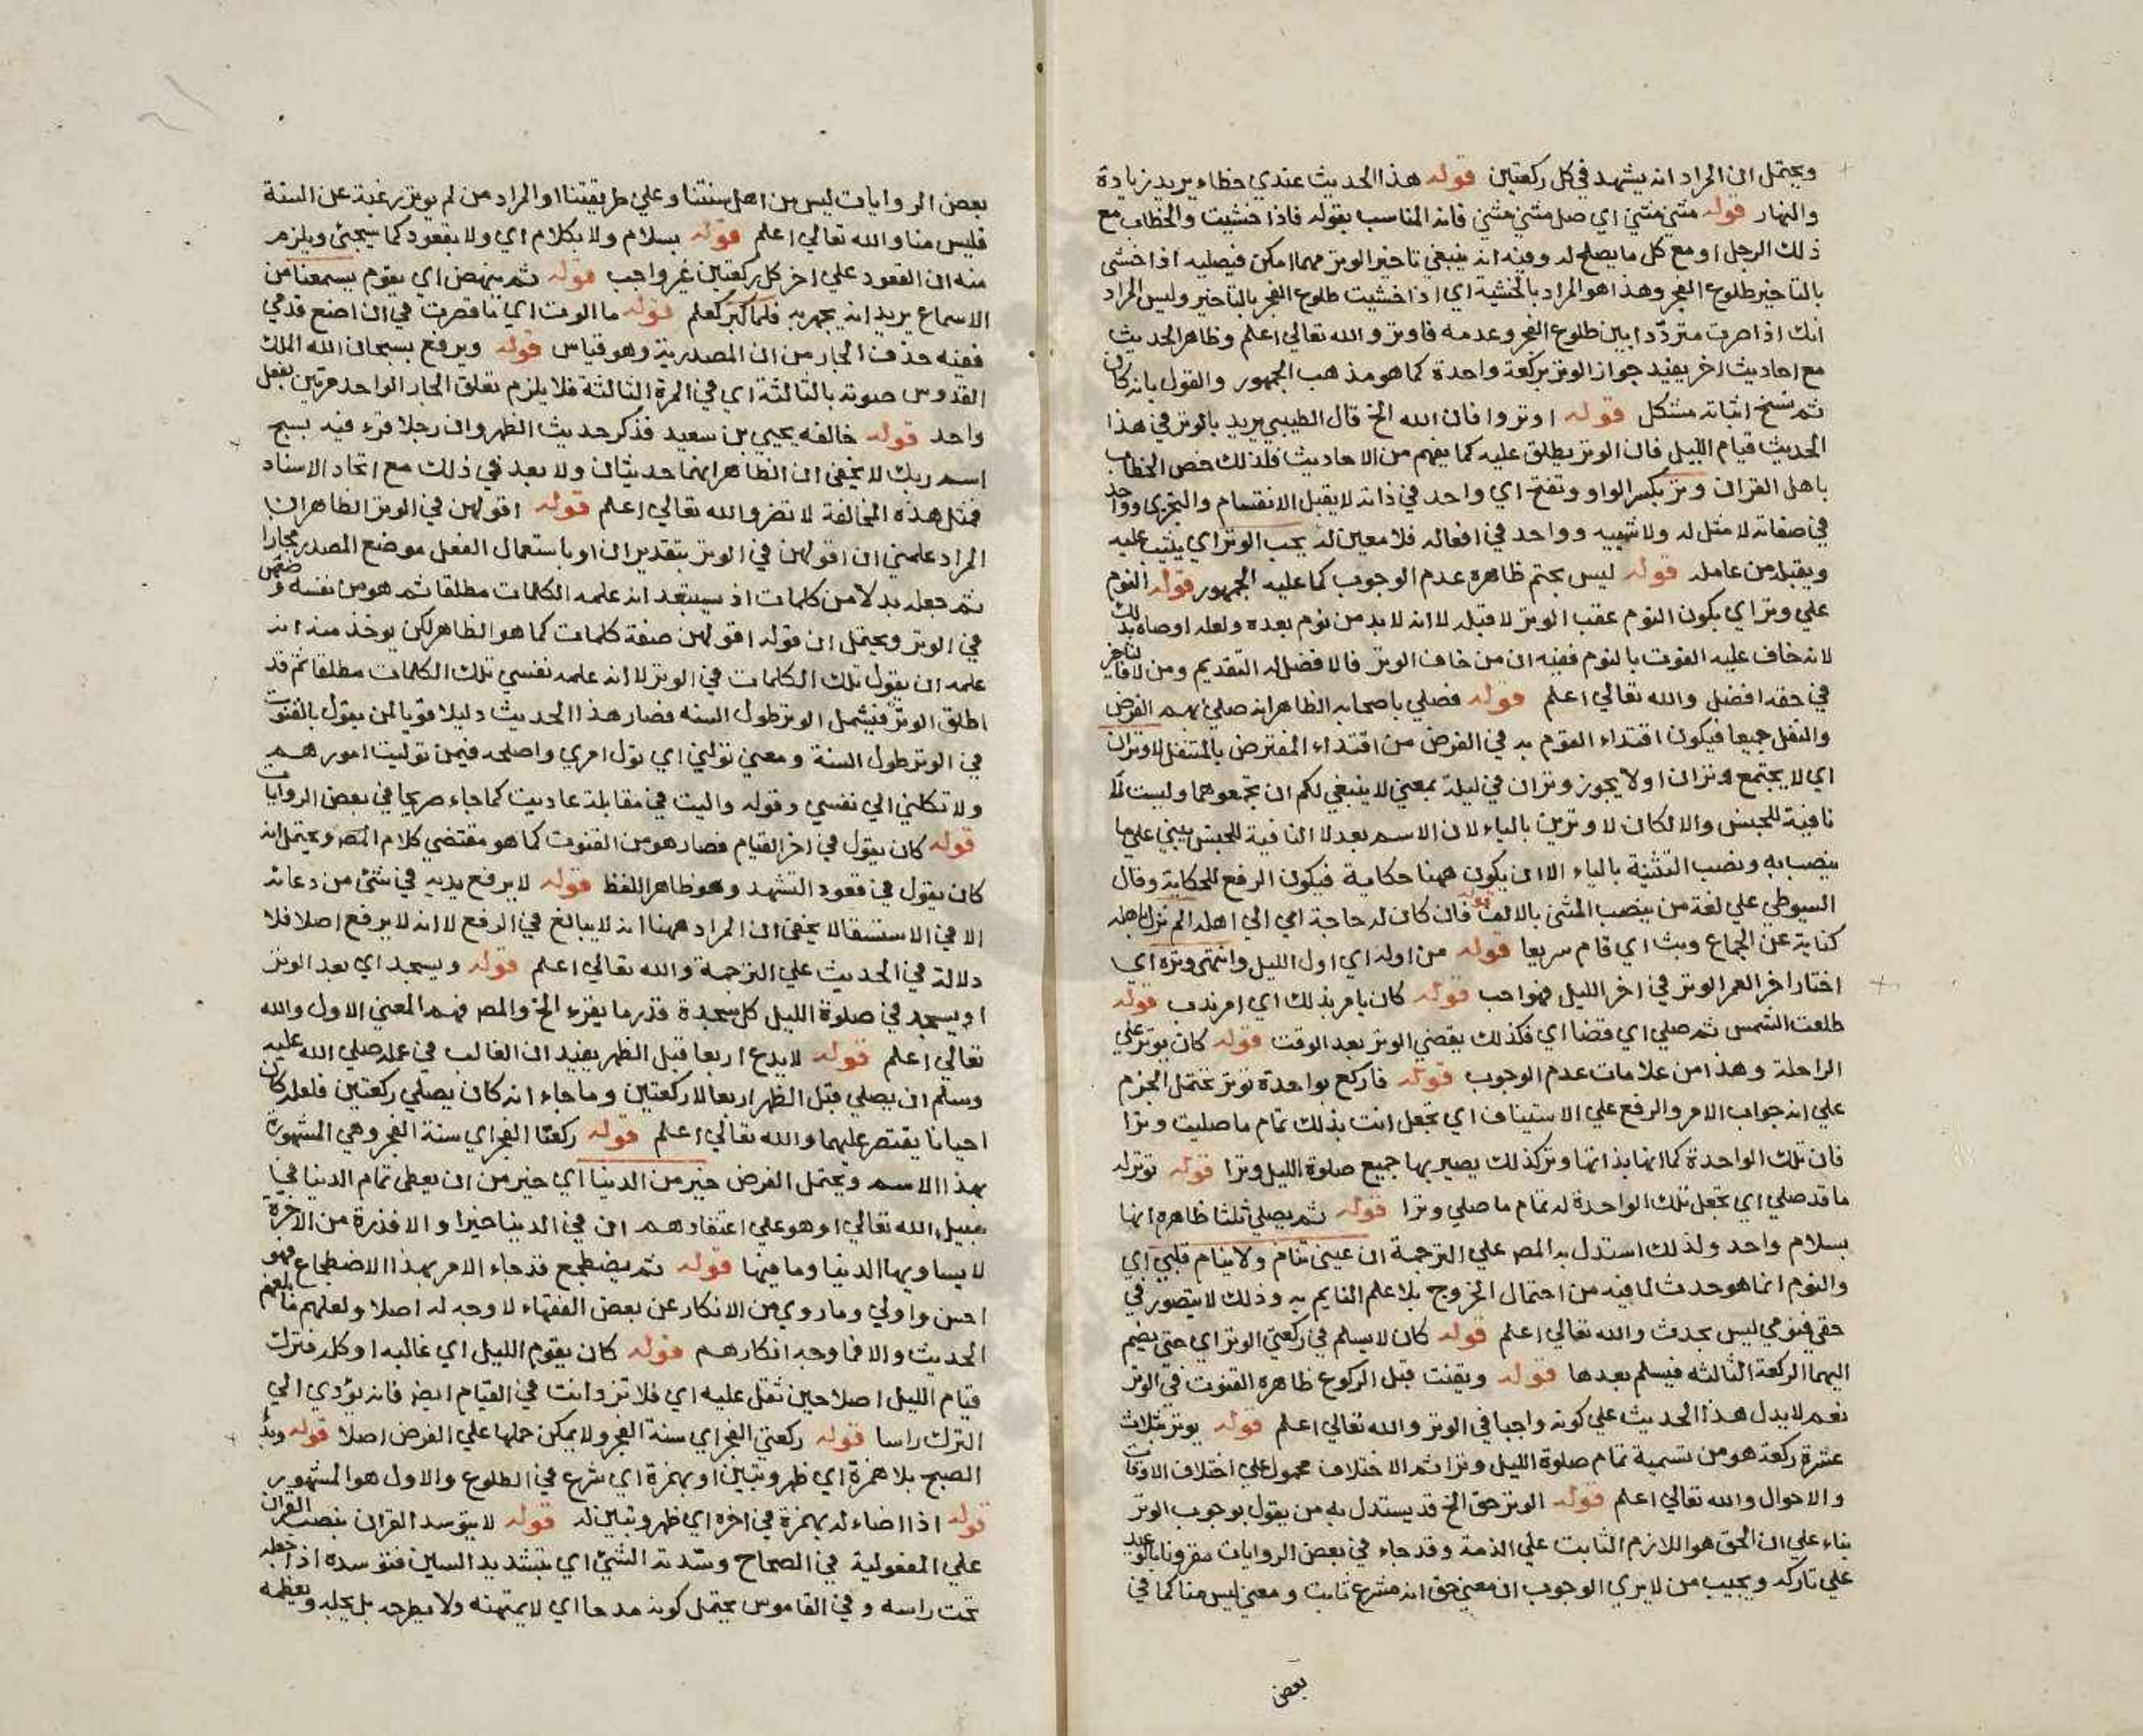 ويحتمل ان المراد انه يشهد في كل ركعتين قوله هذا الحديث عندي خطاء يريد زيادة
والنهار قوله مثني مثني اي صل مثني مثني فانه المناسب بقوله فاذا خشيت والخطاب مع
ذلك الرجل او مع كل ما يصلح له وفيه انه ينبغي تاخير الوتر مهما امكن فيصليه اذا خشي
بالتاخير طلوع الفجر وهذا هو المراد بالخشية اي اذا خشيت طلوع الفجر بالتاخير وليس المراد
انك اذا صرت مترددا بين طلوع الفجر وعدمه فاوتر والله تعالي اعلم وظاهر الحديث
مع احاديث اخر يفيد جواز الوتر بركعة واحدة كما هو مذهب الجمهور والقول بانه كان
ثم نسخ اثباته مشكل قوله اوتروا فان الله الخ قال الطيبي يريد بالوتر في هذا
الحديث قيام الليل فان الوتر يطلق عليه كما يفهم من الاحاديث فلذلك خص الخطاب
باهل القران وتر بكسر الواو وتفتح اي واحد في ذاته لا يقبل الانقسام والتجزي وواحد
في صفاته لا مثل له ولا شبيه وواحد في افعاله فلا معين له يحب الوتر اي يثيب عليه
ويقبله من عامله قوله ليس بحتم ظاهره عدم الوجوب كما عليه الجمهور قوله النوم
علي وتر اي يكون النوم عقب الوتر لا قبله لا انه لا بد من نوم بعده ولعله اوصاه بذلك
لانه خاف عليه الفوت بالنوم ففيه ان من خاف الوتر فالافضل له التقديم ومن لا فالتاخير
في حقه افضل والله تعالي اعلم قوله فصلي باصحابه الظاهر انه صلي بهم الفرض
والنفل جميعا فيكون اقتداء القوم به في الفرض من اقتداء المفترض بالمتنفل لا وتران
اي لا يجتمع وتران او لا يجوز وتران في ليلة بمعني لا ينبغي لكم ان تجمعوهما وليست لا
نافية للجنس والا لكان لا وترين بالياء لان الاسم بعد لا النافية للجنس يبني علي ما
ينصب به ونصب التثنية بالياء الا ان يكون ههنا حكاية فيكون الرفع للحكاية وقال
السيوطي علي لغة من ينصب المثني بالالف قوله فان كان له حاجة اي الي اهله الم نزل باهله
كناية عن الجماع وبث اي قام سريعا قوله من اوله اي اول الليل وانتهي وتره اي
اختار اخر العمر الوتر في اخر الليل فهو احب قوله كان يامر بذلك اي امر ندب قوله
طلعت الشمس ثم صلي اي قضا اي فكذلك يقضي الوتر بعد الوقت قوله كان يوتر علي
الراحلة وهذا من علامات عدم الوجوب قوله فاركع بواحدة توتر يحتمل الجزم
علي انه جواب الامر والرفع علي الاستيناف اي تجعل انت بذلك تمام ما صليت وترا
فان تلك الواحدة كما انها بذاتها وتر كذلك يصير بها جميع صلوة الليل وترا قوله توتر له
ما قد صلي اي تجعل تلك الواحدة له تمام ما صلي وترا قوله ثم يصلي ثلثا ظاهره انها
بسلام واحد ولذلك استدل به المص علي الترجمة ان عيني تنام ولا ينام قلبي اي
والنوم انما هو حدث لما فيه من احتمال الخروج بلا علم النايم به وذلك لا يتصور في
حقي فنومي ليس بحدث والله تعالي اعلم قوله كان لا يسلم في ركعتي الوتر اي حتي يضم
اليهما الركعة الثالثة فيسلم بعدها قوله ويقنت قبل الركوع ظاهره القنوت في الوتر
نعم لا يدل هذا الحديث علي كونه واجبا في الوتر والله تعالي اعلم قوله يوتر بثلاث
عشرة ركعة هو من تسمية تمام صلوة الليل وترا ثم الاختلاف محمول علي اختلاف الاوقات
والاحوال والله تعالي اعلم قوله الوتر حق الخ قد يستدل به من يقول بوجوب الوتر
بناء علي ان الحق هو اللازم الثابت علي الذمة وقد جاء في بعض الروايات مقرونا بالوعيد
علي تاركه ويجيب من لا يري الوجوب ان معني حق انه مشرع ثابت ومعني ليس منا كما في
بعض
بعض الروايات ليس من اهل سنتنا وعلي طريقتنا او المراد من لم يوتر رغبة عن السنة
فليس منا والله تعالي اعلم قوله بسلام ولا بكلام اي ولا بقعود كما سيجئ ويلزم
منه ان القعود علي اخر كل ركعتين غير واجب قوله ثم ينهض اي يقوم يسمعنا من
الاسماع يريد انه يجهر به فلما كبر كعلم قوله ما الوت اي ما قصرت في ان اضع قدمي
ففيه حذف الجار من ان المصدرية وهو قياس قوله ويرفع بسبحان الله الملك
القدوس صوته بالثالثة اي في المرة الثالثة فلا يلزم تعلق الجار الواحد مرتين بفعل
واحد قوله خالفه يحيي بن سعيد فذكر حديث الظهر وان رجلا قرء فيه بسبح
اسم ربك لا يخفي ان الظاهر انهما حديثان ولا بعد في ذلك مع اتحاد الاسناد
فمثل هذه المخالفة لا تضر والله تعالي اعلم قوله اقولهن في الوتر الظاهر ان
المراد علمني ان اقولهن في الوتر بتقدير ان او باستعمال الفعل موضع المصدر مجازا
ثم جعله بدلا من كلمات اذ يستبعد انه علمه الكلمات مطلقا ثم هو من نفسه وضعهن
في الوتر ويحتمل ان قوله اقولهن صفة كلمات كما هو الظاهر لكن يوخذ منه انه
علمه ان يقول تلك الكلمات في الوتر لا انه علمه نفسي تلك الكلمات مطلقا ثم قد
اطلق الوتر فيشمل الوتر طول السنه فصار هذا الحديث دليلا قويا لمن يقول بالقنوت
في الوتر طول السنة ومعني تولني اي تول امري واصلحه فيمن توليت امورهم
ولا تكلني الي نفسي وقوله واليت في مقابلة عاديت كما جاء صريحا في بعض الروايات
قوله كان يقول في اخر القيام فصار هو من القنوت كما هو مقتضي كلام المص ويحتمل انه
كان يقول في قعود التشهد وهو ظاهر اللفظ قوله لا يرفع يديه في شئ من دعائه
الا في الاستسقا لا يخفي ان المراد ههنا انه لا يبالغ في الرفع لا انه لا يرفع اصلا فلا
دلالة في الحديث علي الترجمة والله تعالي اعلم قوله ويسجد اي بعد الوتر
او يسجد في صلوة الليل كل سجدة قدر ما يقرء الخ والمص فهم المعني الاول والله
تعالي اعلم قوله لا يدع اربعا قبل الظهر يفيد ان الغالب في عمله صلي الله عليه
وسلم ان يصلي قبل الظهر اربعا لا ركعتين وما جاء انه كان يصلي ركعتين فلعله كان
احيانا يقتصر عليهما والله تعالي اعلم قوله ركعتا الفجر اي سنة الفجر وهي المشهورة
بهذا الاسم ويحتمل الفرض خير من الدنيا اي خير من ان يعطي تمام الدنيا في
سبيل الله تعالي او هو علي اعتقادهم ان في الدينا خيرا والا فذرة من الاخرة
لا يساويها الدنيا وما فيها قوله ثم يضطجع قد جاء الامر بهذا الاضطجاع فهو
احسن واولي وما روي من الانكار عن بعض الفقهاء لا وجه له اصلا ولعلهم ما بلغهم
الحديث والا فما وجه انكارهم قوله كان يقوم الليل اي غالبه او كله فترك
قيام الليل اصلا حين ثقل عليه اي فلا تزد انت في القيام ايض فانه يؤدي الي
الترك راسا قوله ركعتي الفجر اي سنة الفجر ولا يمكن حملها علي الفرض اصلا قوله وبدا
الصبح بلا همزة اي ظهر وتبين او بهمزة اي شرع في الطلوع والاول هو المشهور
قوله اذا اضاء له بهمزة في اخره اي ظهر وتبين له قوله لا يتوسد القران بنصب القران
علي المفعولية في الصحاح وسدته الشئ اي بتشديد السين فتوسده اذا جعله
تحت راسه وفي القاموس يحتمل كونه مدحا اي لا يمتهنه ولا يطرحه بل يجله ويعظمه